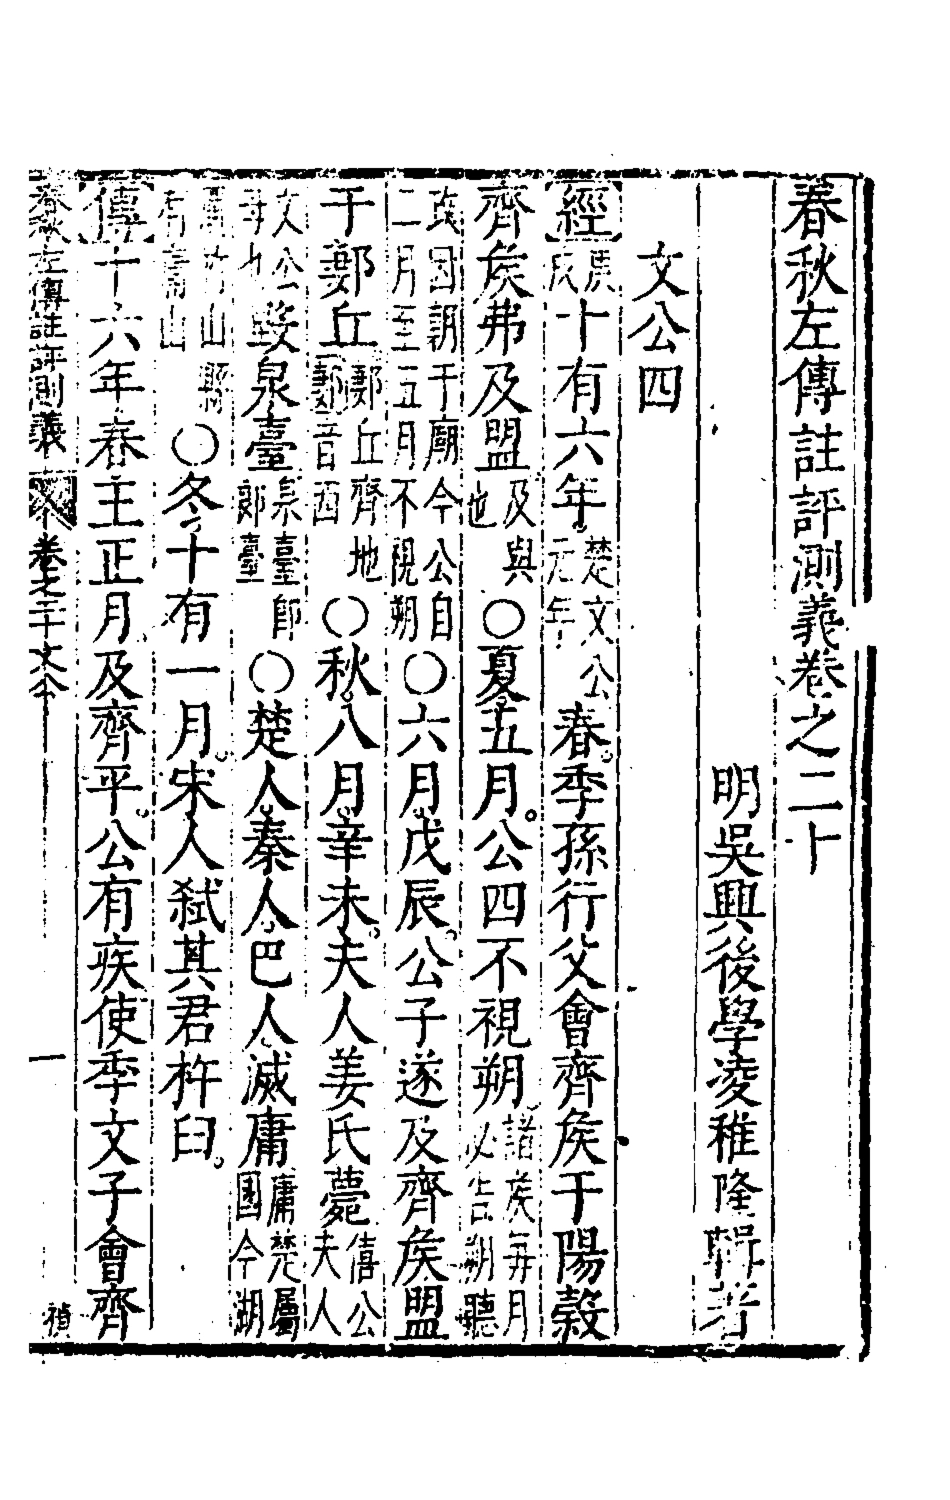 春秋左傳註評測義卷之二十
明吳興後學凌稚隆輯著
文公四
【經】庚戌十有六年楚文公元年春季孫行父會齊侯于陽穀
齊侯弗及盟及與也〇夏五月公四不視朔諸侯每月必告朔聽
政因朝于廟今公自二月至五月不視朔〇六月戊辰公子遂及齊侯盟
于郪丘郪丘齊地郪音西〇秋八月辛未夫人姜氏薨僖公夫人
文公母也毀泉臺泉臺即郎臺〇楚人秦人巴人滅庸庸楚屬國今湖
廣竹山縣有庸山〇冬十有一月宋人弒其君杵臼
【傳】十六年春王正月及齊平公有疾使季文子會齊
春秋左傳註評測義 卷之二十 文公 一 禎